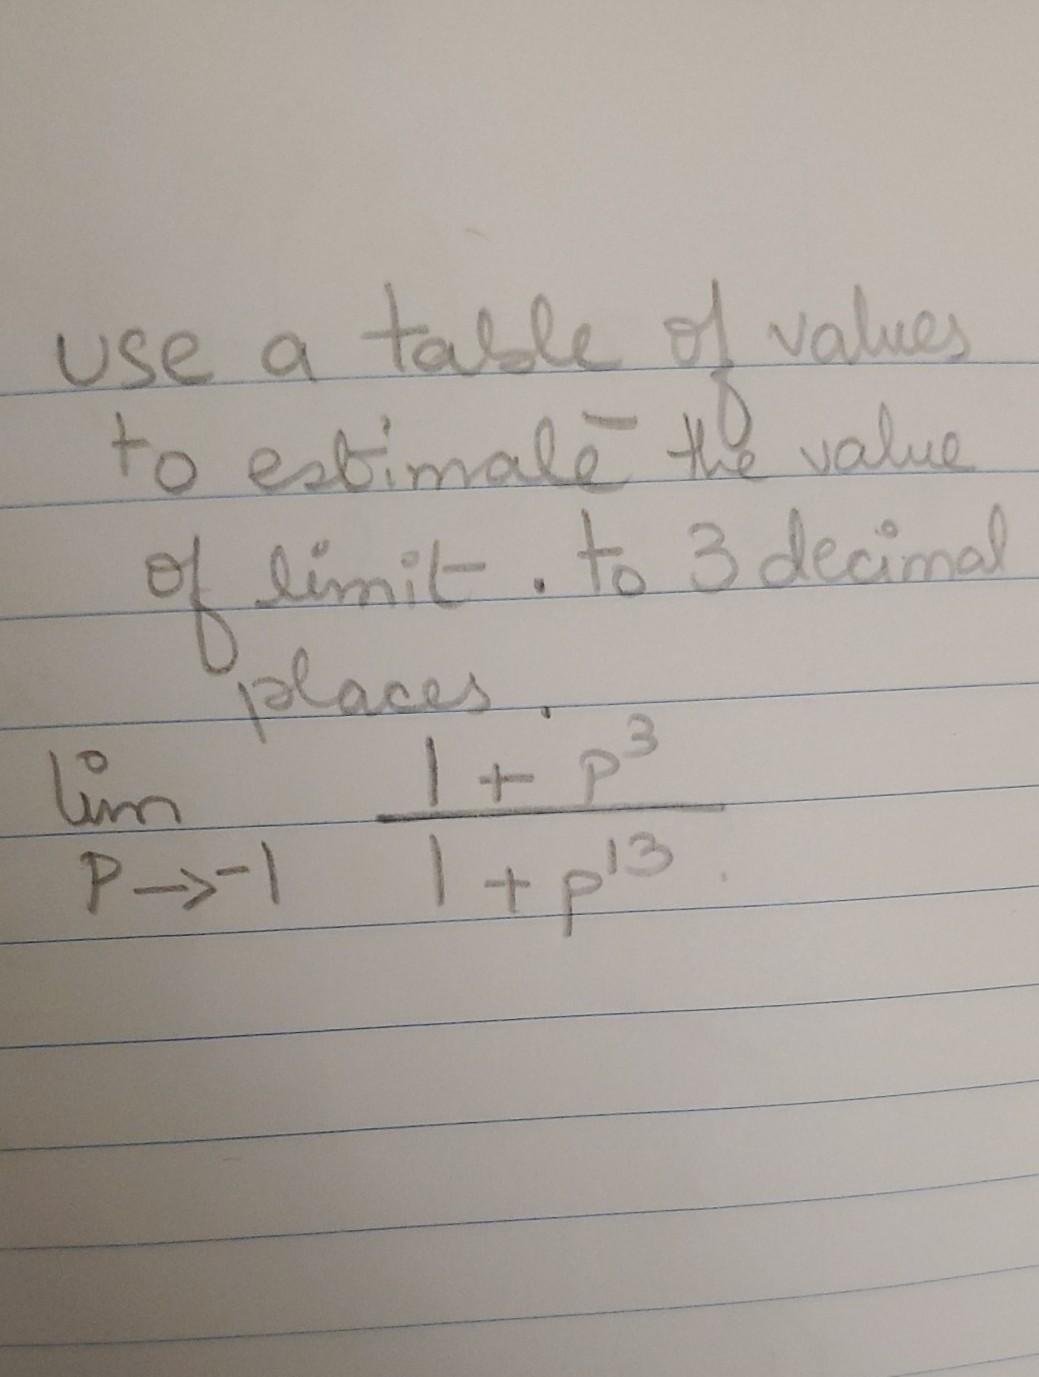 use a table of values
to estimate the value
of limit. to 3 decimal
places.
lim 1 + p³
p→-1 1 + p¹³.